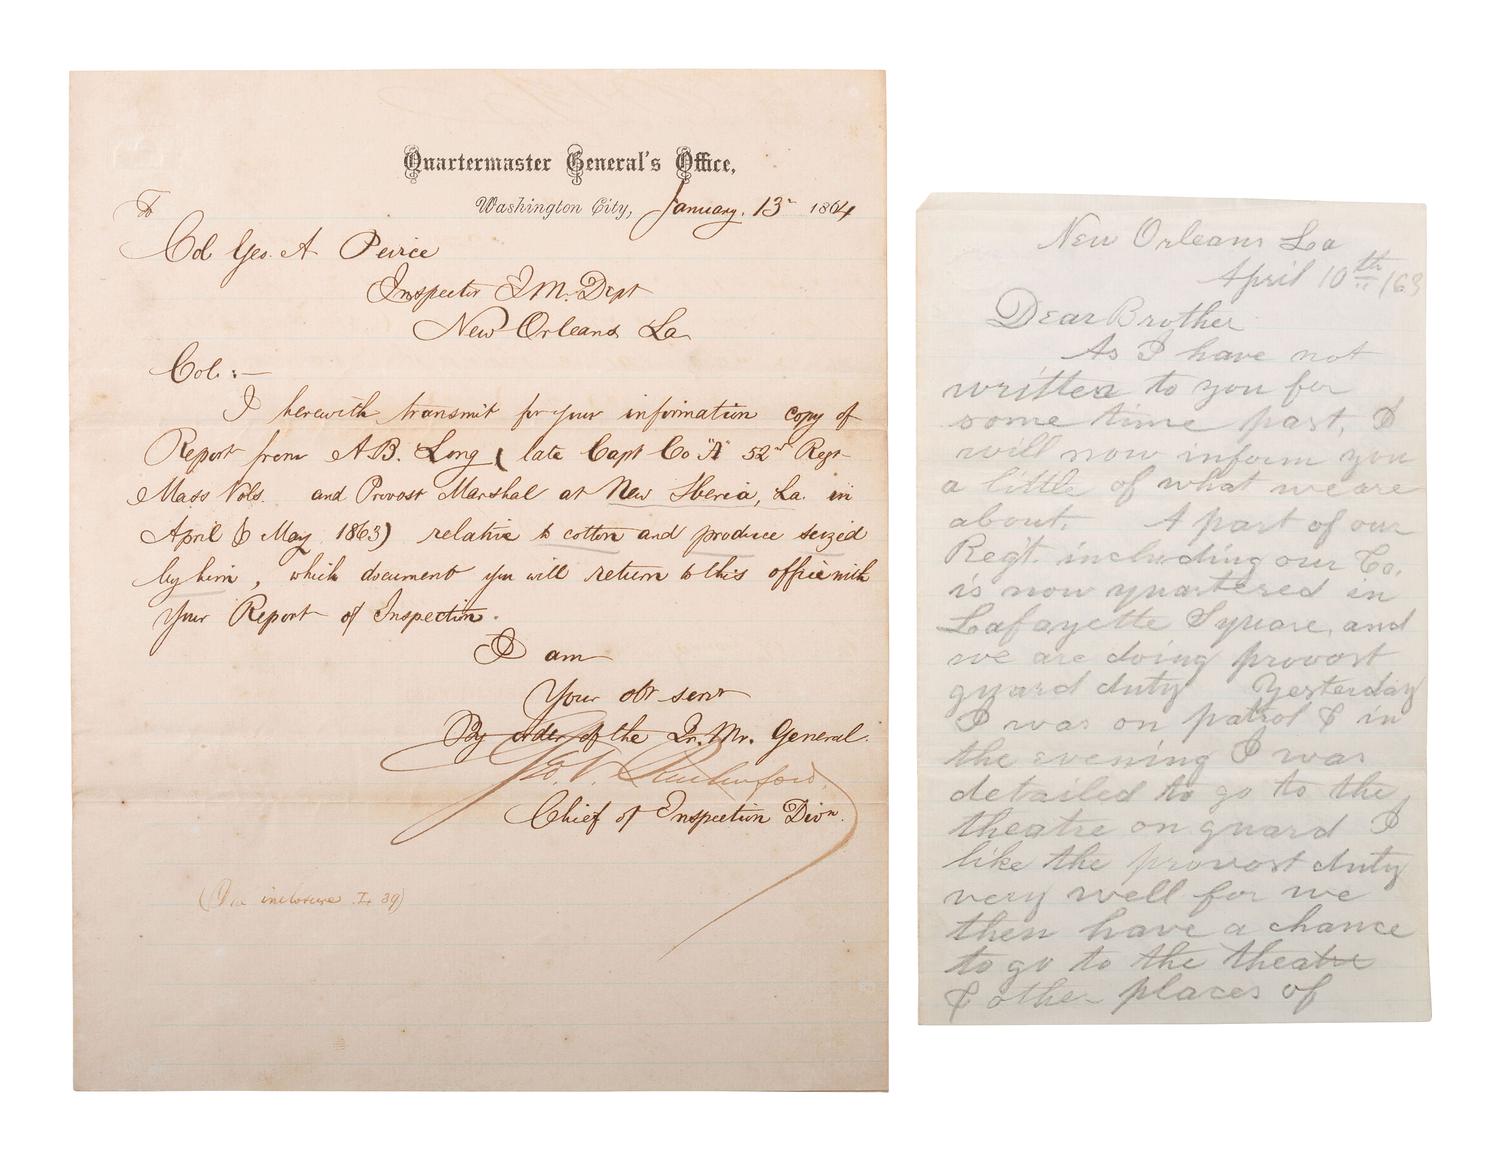 Quartermaster General's Office,
Washington City, January. 13" 1864
To
Col Geo. A Peirce
Inspector Q. M. Dept
New Orleans La
Col. :—
I herewith transmit for your information copy of
Report from A.B. Long ( late Capt Co "A" 52nd Regt
Mass Vols. and Provost Marshal at New Iberia, La. in
April & May 1863) relative to cotton and produce seized
by him, which document you will return to this office with
your Report of Inspection.
I am
Your obt servt
By order of the Qr. Mr. General.
Geo. V. Rutherford.
Chief of Inspection Divn.
inclosure
New Orleans La
April 10th /63
Dear Brother
As I have not
written to you for
some time past, I
will now inform you
a little of what we are
about. A part of our
Regt. including our Co.
is now quartered in
Lafayette Square, and
we are doing provost
guard duty Yesterday
I was on patrol & in
the evening I was
detailed to go to the
theatre on guard I
like the provost duty
very well for we
then have a chance
to go to the theatre
& other places of